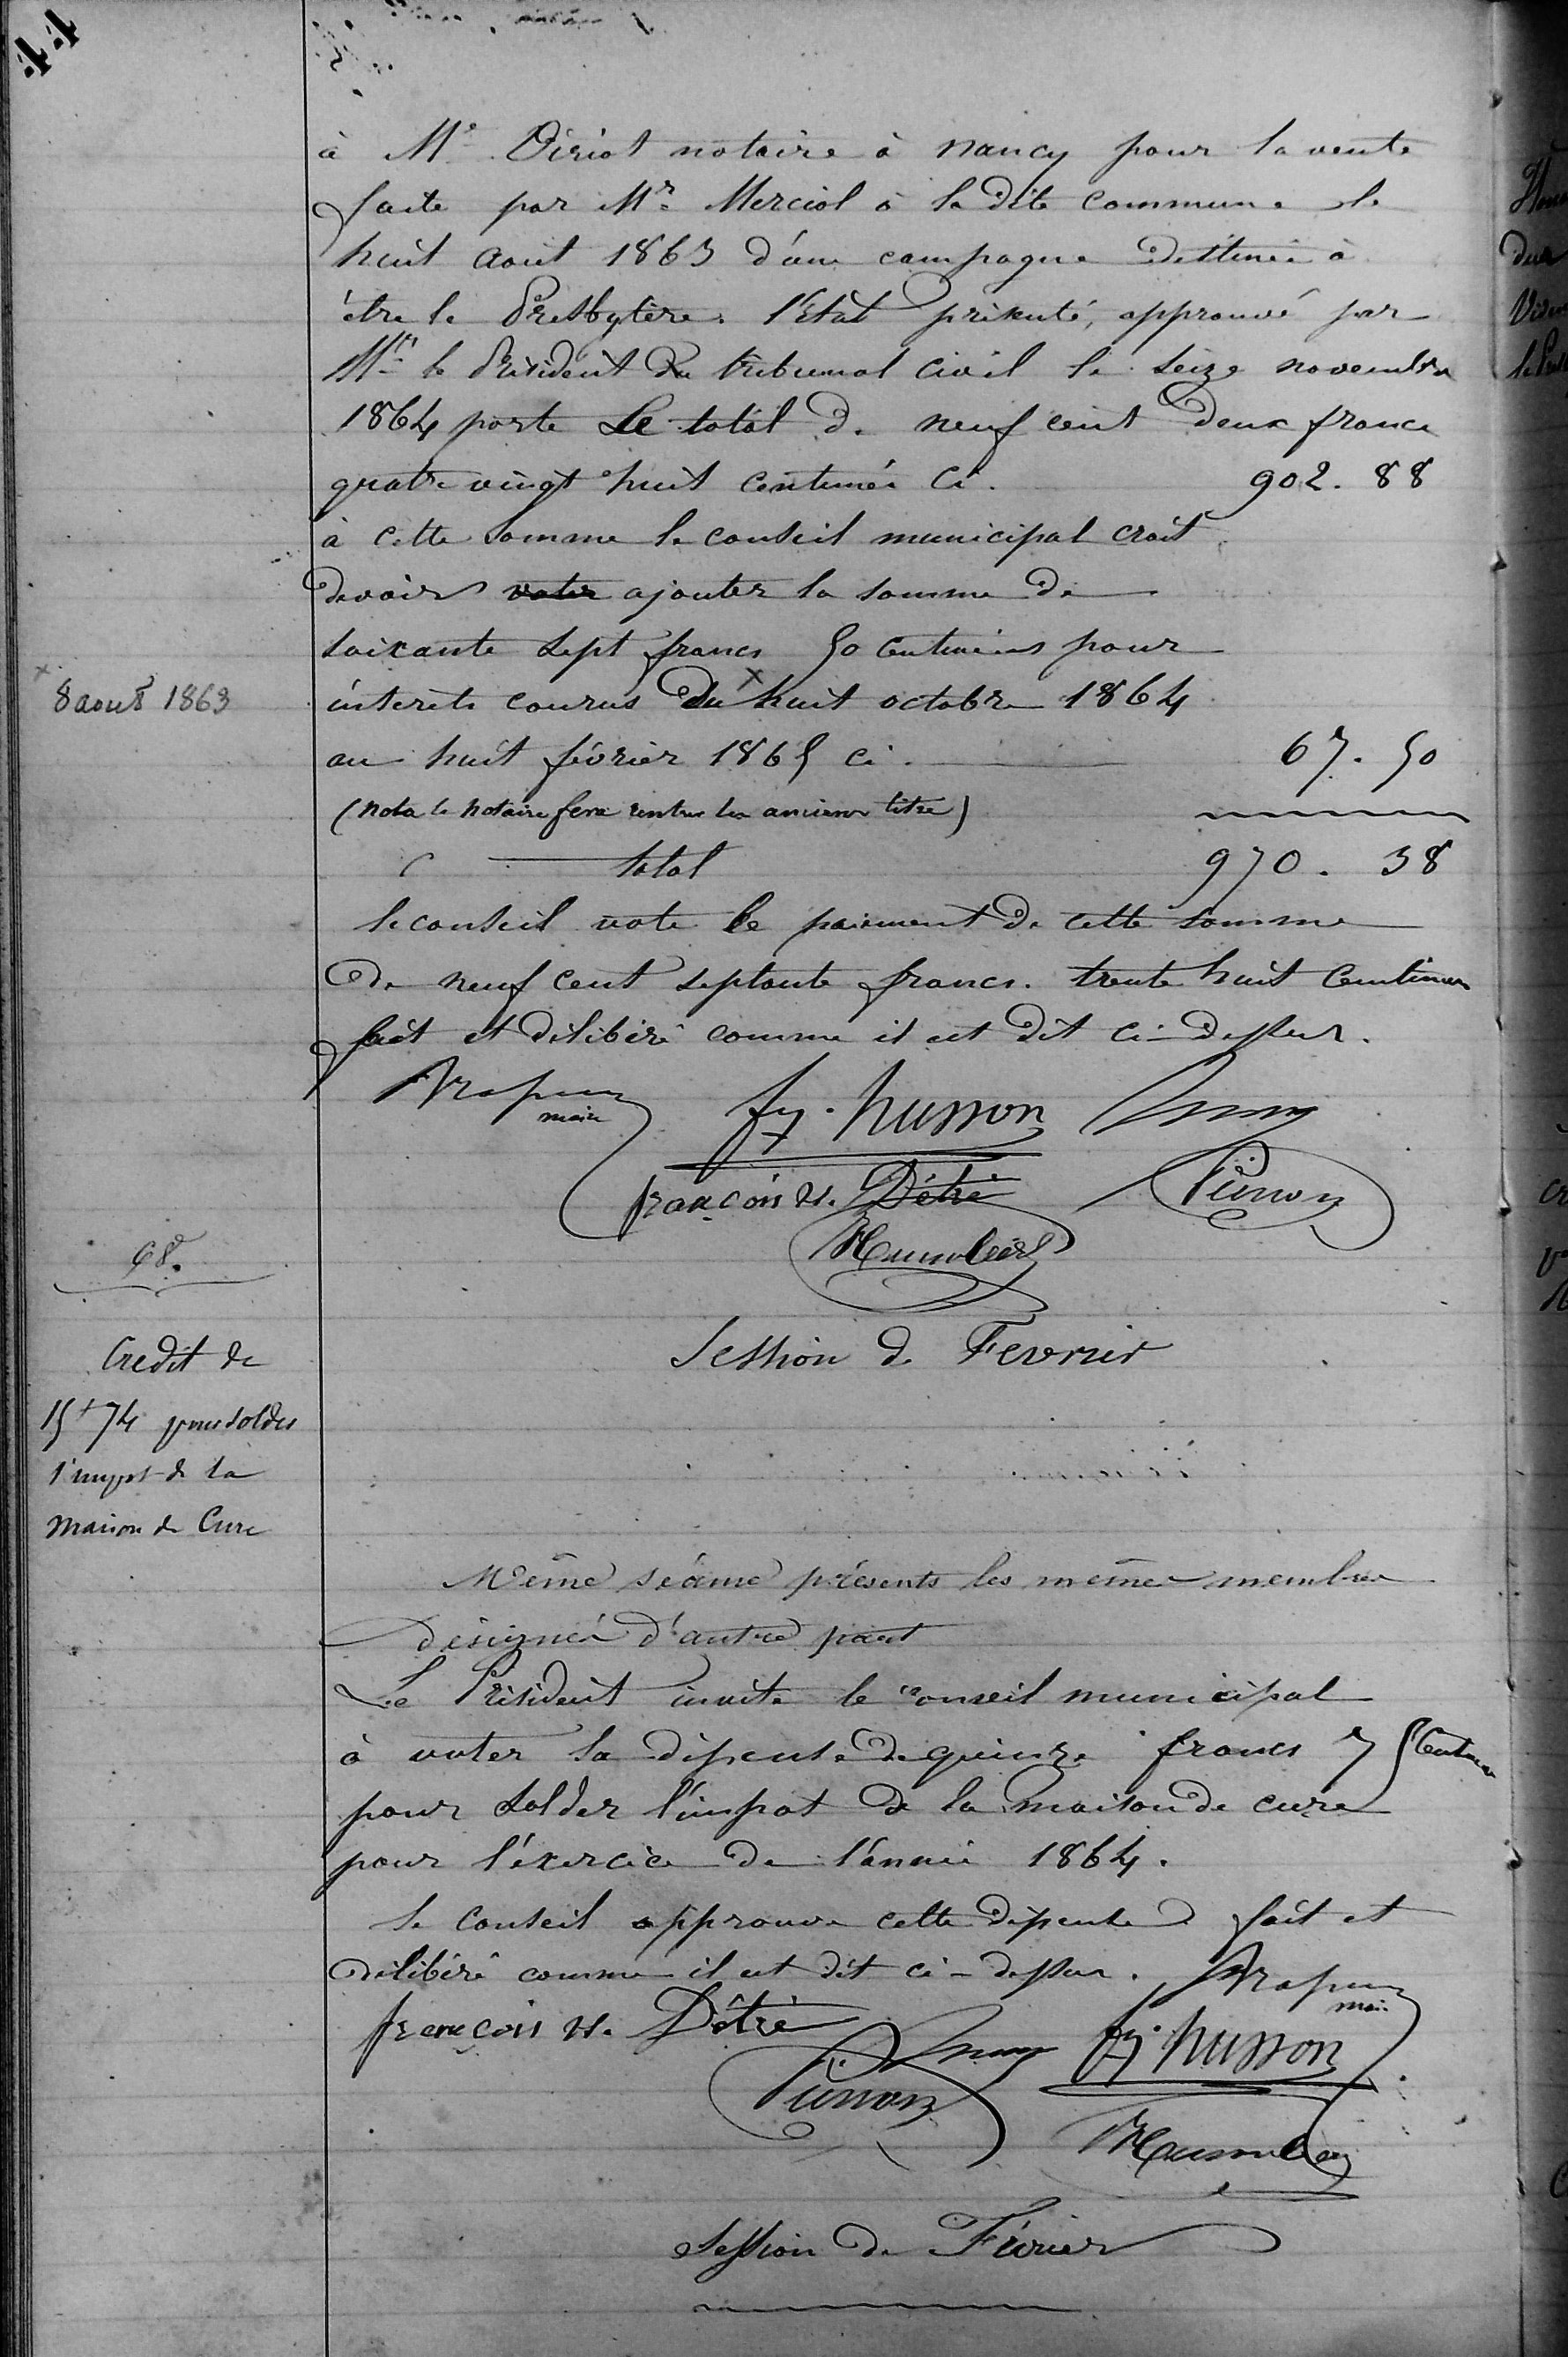 44
à Me Viriot notaire à nancy pour la vente
faite par Mr Merciol à la dite commune le
huit aout 1863 d'une campagne destinée à
être le Presbytère. l'Etat présenté, approuvé par
Mr le Président du tribunal civil le seize novembre
1864 porte Le total de neuf cent deux francs
quatre vingt huit centimes Ci. 902. 88
à cette somme le conseil municipal croit
devoir voter ajouter la somme de
soixante sept francs 50 centimes pour
x
8 aout 1863
interets courus du x huit octobre 1864
au huit février 1865 ci. 67. 50
(nota le notaire fera rentrer les anciens titre)
total 970. 38
le conseil vote le paiement de cette somme
de neuf cent septante francs. trente huit Centimes
fait et délibéré comme il est dit ci-dessus.
maire
fs. husson
françois N. Détré
Pierron
Humbert
68.
Session de Fevrier
Credit de
15f 74 pour solder
l'impot de la
maison de Cure
Même séance présents les mêmes membres
désignés d'autre part
Le Président invite le conseil municipal
à voter la dépense de quinze francs 75 Centimes
pour solder l'impot de la maison de cure
pour l'éxercice de l'année 1864.
le Conseil approuve cette dépense fait et
délibéré comme il est dit ci-dessus.
maire
françois N. Détré
fs. husson
Pierron
Humbert
Session de Février